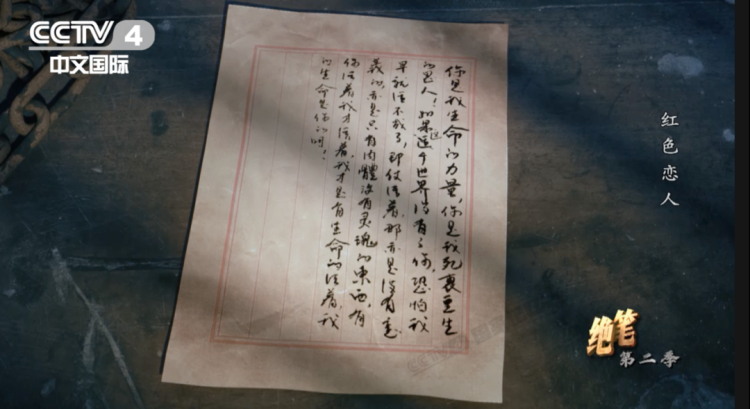 CCTV 4
中文国际
你是我生命的力量,你是我死裏重生
的恩人!如果這个世界没有了你,恐怕我
早就活不成了,即使活着,那亦是没有意
義的,亦是只有肉體没有灵魂的東西。有
你活着我才活着,我才是有生命的活着,我
的生命是你的呀!
红色恋人
绝笔
第二季